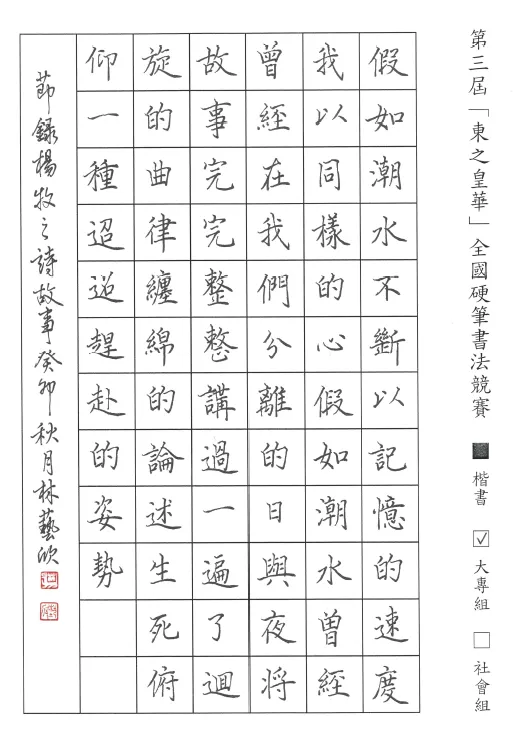 第三屆「東之皇華」全國硬筆書法競賽 ■ 楷書 ☑ 大專組 □ 社會組
假如潮水不斷以記憶的速度
我以同樣的心假如潮水曾經
曾經在我們分離的日與夜將
故事完完整整講過一遍了迴
旋的曲律纏綿的論述生死俯
仰一種迢迢趕赴的姿勢
節錄楊牧之詩故事癸卯秋月林藝欣